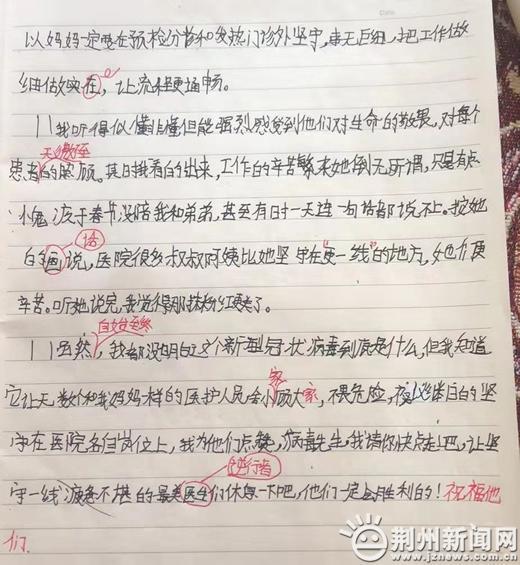 以妈妈一定要在预检分诊和发热门诊外坚守,事无巨细,把工作做
细做实在,让流程更通畅。
我听得似懂非懂但能强烈感受到他们对生命的敬畏,对每个
患者的照顾。其实我看的出来,工作的辛苦繁来她倒无所谓,只是有点
无微不至
小愧疚于春节没陪我和弟弟,甚至有时一天连一句话都说不上。按她
的画说,医院很多叔叔阿姨比她坚守在更"一线"的地方,她们更
话
辛苦。听她说完,我觉得那抹红更
虽然,我都没明白这个新型冠状病毒到底是什么,但我知道
自始至终
它让无数个和我妈妈一样的医护人员舍小顾大家,不畏危险,夜以继日的坚
家
守在医院各自岗位上,我为他们点赞,病毒先生,我请你快点走吧,让坚
守一线疲惫不堪的最美医生们休息一下吧,他们一定会胜利的!祝福他
逆行者
们.
荆州新闻网
www.jznews.cn